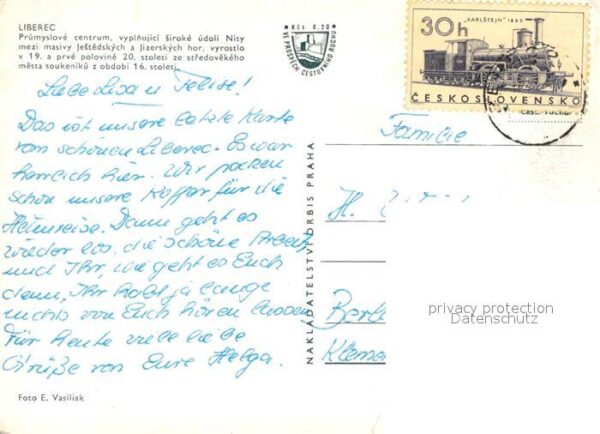 LIBEREC
Průmyslové centrum, vyplňující široké údolí Nisy
mezi masivy Ještědských a Jizerských hor, vyrostlo
v 19. a prvé polovině 20. století ze středověkého
města soukeníků z období 16. století.
Kčs 0,20
VE PROSPĚCH CESTOVNÍHO RUCHU
"KARLŠTEJN" 1865
30h
ČESKOSLOVENSKO
Liebe Lisa u Felise!
Das ist unsere letzte Karte
vom schönen Liberec. Es war
herrlich hier. Wir packen
schon unsere Koffer für die
Heimreise. Dann geht es
wieder los, die schöne Arbeit,
und Ihr, wie geht es Euch
denn, Ihr habt ja lange
nichts von Euch hören lassen.
Für heute viele liebe
Grüße von Eure Helga.
Familie
H.
Berl
Kleme
NAKLADATELSTVÍ ORBIS PRAHA
privacy protection
Datenschutz
Foto E. Vasiliak